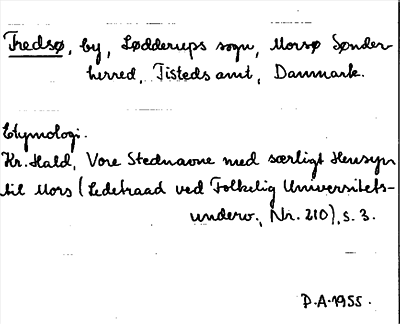 Fredsø, by, Lødderups sogn, Morsø Sønder-
herred, Tisteds amt, Danmark.
Etymologi.
Kr. Hald, Vore Stednavne med særligt Hensyn
til Mors (Ledetraad ved Folkelig Universitets-
underv., Nr. 210), s. 3.
P.A. 1955.